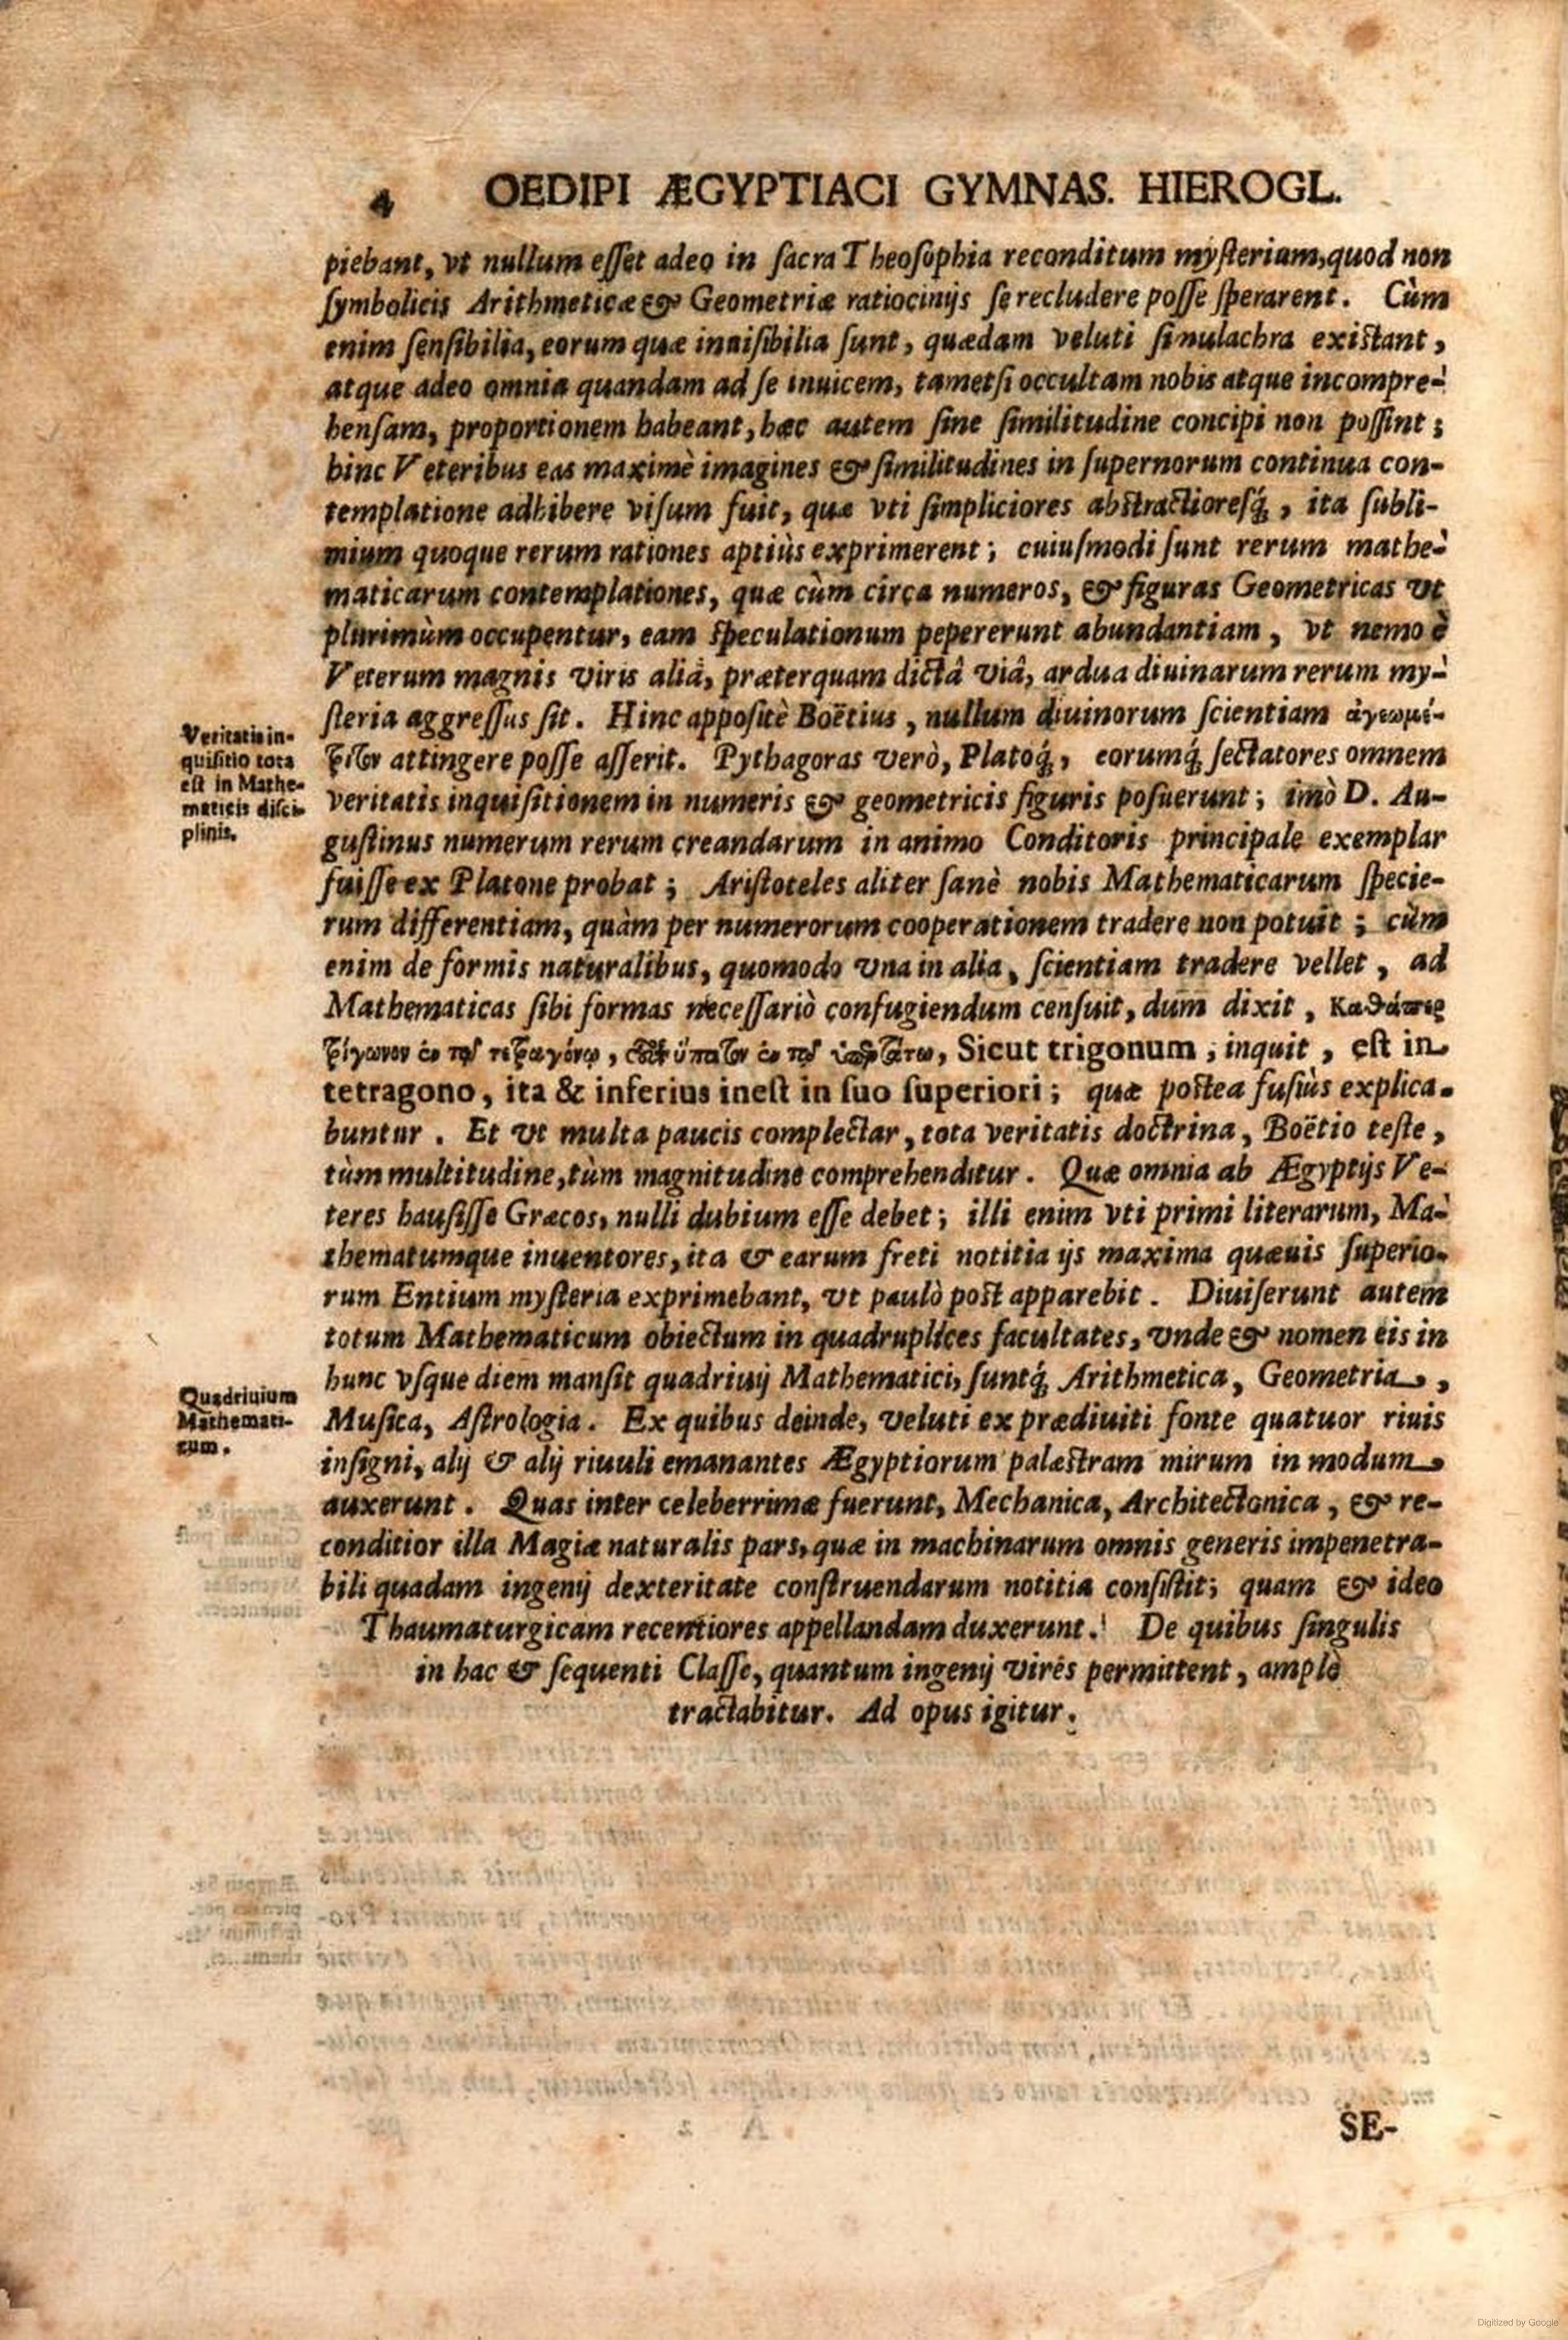 4 OEDIPI ÆGYPTIACI GYMNAS. HIEROGL.
piebant, vt nullum eſſet adeo in ſacra Theoſophia reconditum myſterium, quod non
ſymbolicis Arithmeticæ & Geometriæ ratiocinijs ſe recludere poſſe ſperarent. Cùm
enim ſenſibilia, eorum quæ inuiſibilia ſunt, quædam veluti ſimulachra exiſtant,
atque adeo omnia quandam ad ſe inuicem, tametſi occultam nobis atque incompre-
henſam, proportionem habeant, hæc autem ſine ſimilitudine concipi non poſſint;
hinc Veteribus eas maximè imagines & ſimilitudines in ſupernorum continua con-
templatione adhibere viſum fuit, quæ vti ſimpliciores abſtractioreſq́, ita ſubli-
mium quoque rerum rationes aptiùs exprimerent; cuiuſmodi ſunt rerum mathe-
maticarum contemplationes, quæ cùm circa numeros, & figuras Geometricas vt
plurimùm occupentur, eam ſpeculationum pepererunt abundantiam, vt nemo è
Veterum magnis viris aliâ, præterquam dictâ viâ, ardua diuinarum rerum my-
ſteria aggreſſus ſit. Hinc appoſitè Boëtius, nullum diuinorum ſcientiam ἀγεωμέ-
τρητον attingere poſſe aſſerit. Pythagoras verò, Platoq́, eorumq́ ſectatores omnem
veritatis inquiſitionem in numeris & geometricis figuris poſuerunt; imò D. Au-
guſtinus numerum rerum creandarum in animo Conditoris principale exemplar
fuiſſe ex Platone probat; Ariſtoteles aliter ſanè nobis Mathematicarum ſpecie-
rum differentiam, quàm per numerorum cooperationem tradere non potuit; cùm
enim de formis naturalibus, quomodo vna in alia, ſcientiam tradere vellet, ad
Mathematicas ſibi formas neceſſariò confugiendum cenſuit, dum dixit, Καθάπερ
τρίγωνον ἐν τῷ τετραγώνῳ, ὕπατον ἐν τῷ Sicut trigonum, inquit, eſt in
tetragono, ita & inferius ineſt in ſuo ſuperiori; quæ poſtea fuſiùs explica-
buntur. Et vt multa paucis complectar, tota veritatis doctrina, Boëtio teſte,
tùm multitudine, tùm magnitudine comprehenditur. Quæ omnia ab Ægyptijs Ve-
teres hauſiſſe Græcos, nulli dubium eſſe debet; illi enim vti primi literarum, Ma-
thematumque inuentores, ita & earum freti notitia ijs maxima quæuis ſuperio-
rum Entium myſteria exprimebant, vt paulò poſt apparebit. Diuiſerunt autem
totum Mathematicum obiectum in quadruplices facultates, vnde & nomen eis in
hunc vſque diem manſit quadriuij Mathematici, ſuntq́ Arithmetica, Geometria,
Muſica, Aſtrologia. Ex quibus deinde, veluti ex prædiuiti fonte quatuor riuis
inſigni, alij & alij riuuli emanantes Ægyptiorum palæſtram mirum in modum
auxerunt. Quas inter celeberrimæ fuerunt, Mechanica, Architectonica, & re-
conditior illa Magiæ naturalis pars, quæ in machinarum omnis generis impenetra-
bili quadam ingenij dexteritate conſtruendarum notitia conſiſtit; quam & ideo
Thaumaturgicam recentiores appellandam duxerunt. De quibus ſingulis
in hac & ſequenti Claſſe, quantum ingenij vires permittent, amplè
tractabitur. Ad opus igitur.
Veritatis in-
quiſitio tota
eſt in Mathe-
maticis diſci-
plinis.
Quadriuium
Mathemati-
cum.
SE-
Digitized by Google